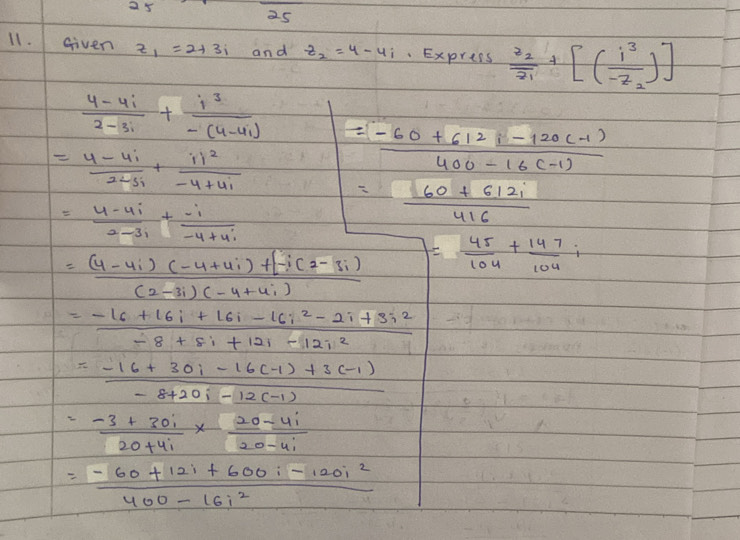 25
25
11. Given z₁ = 2+3i and z₂ = 4-4i. Express z₂/z̄₁ + [(i³/-z₂)]
(4-4i)/(2-3i) + i³/-(4-4i)
= (4-4i)/(2-3i) + ii²/(-4+4i)
= (4-4i)/(2-3i) + -i/(-4+4i)
= ((4-4i)(-4+4i) + [-i(2-3i))/((2-3i)(-4+4i))
= (-16+16i+16i-16i²-2i+3i²)/(-8+8i+12i-12i²)
= (-16+30i-16(-1)+3(-1))/(-8+20i-12(-1))
= (-3+30i)/(20+4i) × (20-4i)/(20-4i)
= (-60+12i+600i-120i²)/(400-16i²)
= (-60+612i-120(-1))/(400-16(-1))
= (60+612i)/416
= 45/104 + 147/104 i